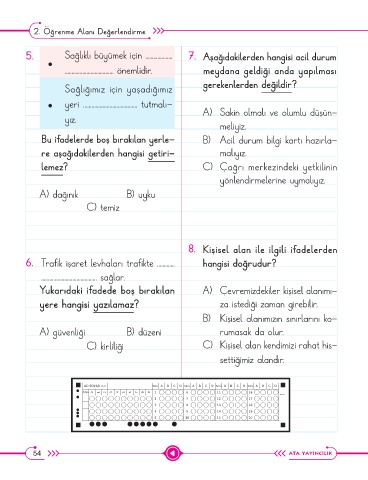 2. Öğrenme Alanı Değerlendirme
5. Sağlıklı büyümek için ................
............................. önemlidir.
Sağlığımız için yaşadığımız
yeri ................................ tutmalı-
yız.
Bu ifadelerde boş bırakılan yerle-
re aşağıdakilerden hangisi getiri-
lemez?
A) dağınık B) uyku
C) temiz
6. Trafik işaret levhaları trafikte ...........
.................................. sağlar.
Yukarıdaki ifadede boş bırakılan
yere hangisi yazılamaz?
A) güvenliği B) düzeni
C) kirliliği
7. Aşağıdakilerden hangisi acil durum
meydana geldiği anda yapılması
gerekenlerden değildir?
A) Sakin olmalı ve olumlu düşün-
meliyiz.
B) Acil durum bilgi kartı hazırla-
malıyız.
C) Çağrı merkezindeki yetkilinin
yönlendirmelerine uymalıyız.
8. Kişisel alan ile ilgili ifadelerden
hangisi doğrudur?
A) Çevremizdekiler kişisel alanımı-
za istediği zaman girebilir.
B) Kişisel alanımızın sınırlarını ko-
rumasak da olur.
C) Kişisel alan kendimizi rahat his-
settiğimiz alandır.
54
ATA YAYINCILIK